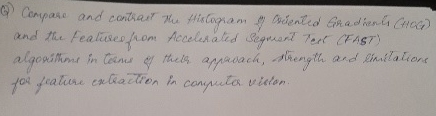 Q) Compare and contrast the Histogram of Oriented Gradients (HOG)
and the Features from Accelerated Segment Test (FAST)
algorithms in terms of their approach, strength and limitations
for feature extraction in computer vision.